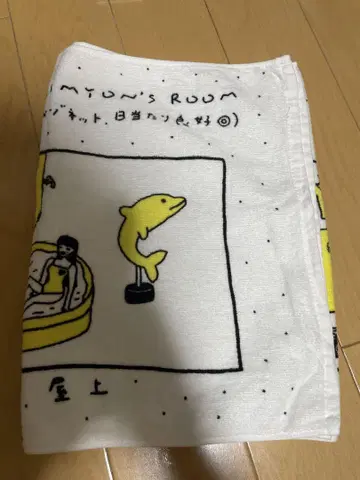 MYON'S ROOM
ジネット、日当たり良好◎)
屋上